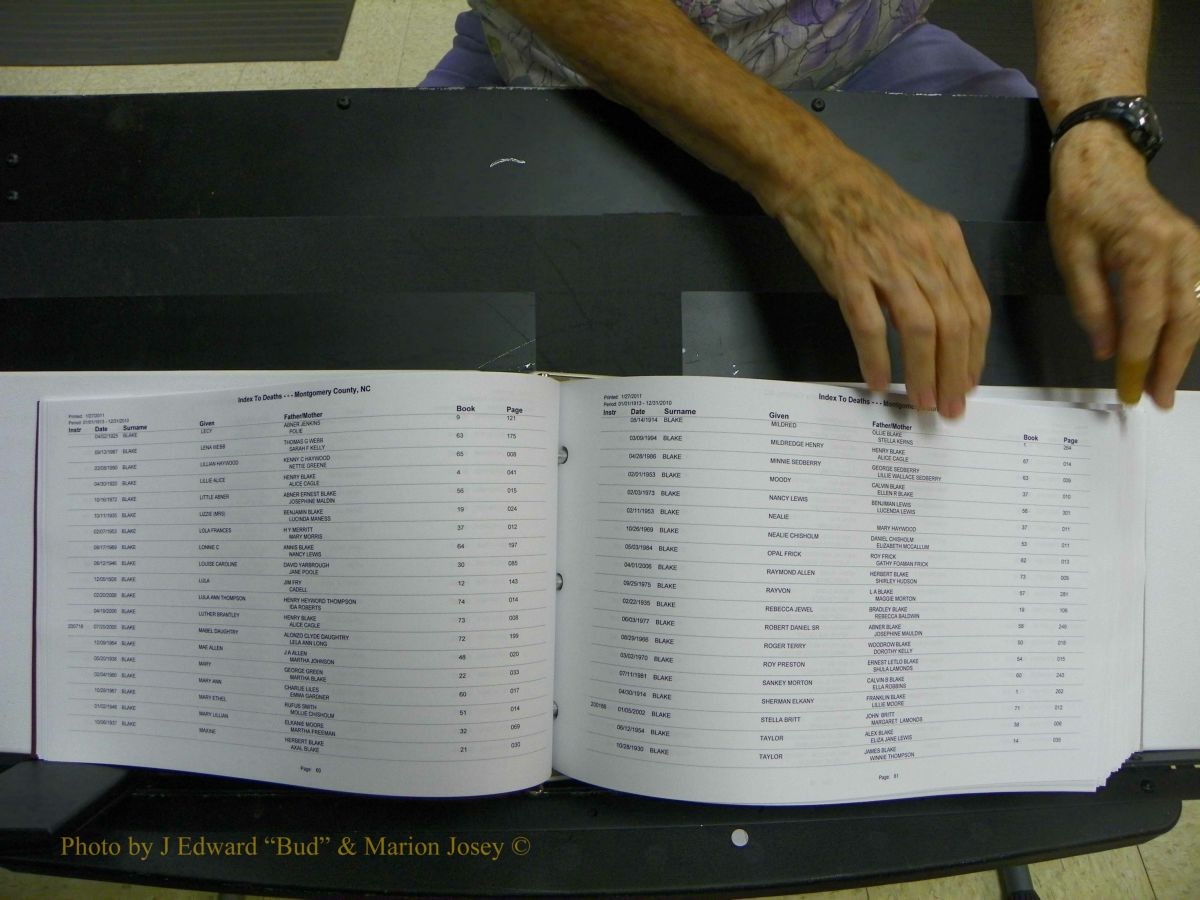 Index To Deaths - - - Montgomery County, NC
Printed: 1/27/2011
Period: 01/01/1913 - 12/31/2010
Instr Date Surname Given Father/Mother Book Page
04/02/1925 BLAKE LECY ABNER JENKINS 9 121
POLIE
09/13/1987 BLAKE LENA WEBB THOMAS G WEBB 63 175
SARAH F KELLY
BLAKE LILLIAN HAYWOOD KENNY C HAYWOOD 65 008
NETTIE GREENE
04/30/1920 BLAKE LILLIE ALICE HENRY BLAKE 4 041
ALICE CAGLE
10/16/1972 BLAKE LITTLE ABNER ABNER ERNEST BLAKE 56 015
JOSEPHINE MALDIN
10/11/1935 BLAKE LIZZIE (MRS) BENJAMIN BLAKE 19 024
LUCINDA MANESS
02/07/1953 BLAKE LOLA FRANCES H Y MERRITT 37 012
MARY MORRIS
BLAKE LONNIE C ANNIS BLAKE 64 197
NANCY LEWIS
BLAKE LOUISE CAROLINE DAVID YARBROUGH 30 085
JANE POOLE
BLAKE LULA JIM FRY 12 143
CADELL
02/20/2008 BLAKE LULA ANN THOMPSON HENRY HEYWORD THOMPSON 74 014
IDA ROBERTS
04/19/2006 BLAKE LUTHER BRANTLEY HENRY BLAKE 73 008
ALICE CAGLE
200716 07/20/2005 BLAKE MABEL DAUGHTRY ALONZO CLYDE DAUGHTRY 72 199
LELA ANN LONG
12/09/1964 BLAKE MAE ALLEN J A ALLEN 48 020
MARTHA JOHNSON
BLAKE MARY GEORGE GREEN 22 033
MARTHA BLAKE
BLAKE MARY ANN CHARLIE LILES 60 017
EMMA GARDNER
10/28/1967 BLAKE MARY ETHEL RUFUS SMITH 51 014
MOLLIE CHISHOLM
01/02/1948 BLAKE MARY LILLIAN ELKANIE MOORE 32 069
MARTHA FREEMAN
10/06/1937 BLAKE MAXINE HERBERT BLAKE 21 030
AXAL BLAKE
Page: 60
Index To Deaths - - - Montgomery
Printed: 1/27/2011
Period: 01/01/1913 - 12/31/2010
Instr Date Surname Given Father/Mother Book Page
08/14/1914 BLAKE MILDRED OLLIE BLAKE
STELLA KERNS
03/09/1994 BLAKE MILDREDGE HENRY HENRY BLAKE 67 014
ALICE CAGLE
04/28/1986 BLAKE MINNIE SEDBERRY GEORGE SEDBERRY 63 009
LILLIE WALLACE SEDBERRY
02/01/1953 BLAKE MOODY CALVIN BLAKE 37 010
ELLEN R BLAKE
02/03/1973 BLAKE NANCY LEWIS BENJIMAN LEWIS 56 301
LUCENDA LEWIS
02/11/1953 BLAKE NEALIE 37 011
MARY HAYWOOD
10/26/1969 BLAKE NEALIE CHISHOLM DANIEL CHISHOLM 53 011
ELIZABETH MCCALLUM
05/03/1984 BLAKE OPAL FRICK ROY FRICK 62 013
GATHY FOAMAN FRICK
04/01/2006 BLAKE RAYMOND ALLEN HERBERT BLAKE 73 005
SHIRLEY HUDSON
09/25/1975 BLAKE RAYVON L A BLAKE 57 281
MAGGIE MORTON
02/22/1935 BLAKE REBECCA JEWEL BRADLEY BLAKE 18 106
REBECCA BALDWIN
06/03/1977 BLAKE ROBERT DANIEL SR ABNER BLAKE 58 248
JOSEPHINE MAULDIN
08/29/1966 BLAKE ROGER TERRY WOODROW BLAKE 50 018
DOROTHY KELLY
03/02/1970 BLAKE ROY PRESTON ERNEST LETLO BLAKE 54 015
SHULA LAMONDS
07/11/1981 BLAKE SANKEY MORTON CALVIN B BLAKE 60 243
ELLA ROBBINS
04/30/1914 BLAKE SHERMAN ELKANY FRANKLIN BLAKE 1 262
LILLIE MOORE
200188 01/05/2002 BLAKE STELLA BRITT JOHN BRITT 71 012
MARGARET LAMONDS
06/12/1954 BLAKE TAYLOR ALEX BLAKE 38 006
ELIZA JANE LEWIS
10/28/1930 BLAKE TAYLOR JAMES BLAKE 14 035
WINNIE THOMPSON
Page: 61
Photo by J Edward "Bud" & Marion Josey ©